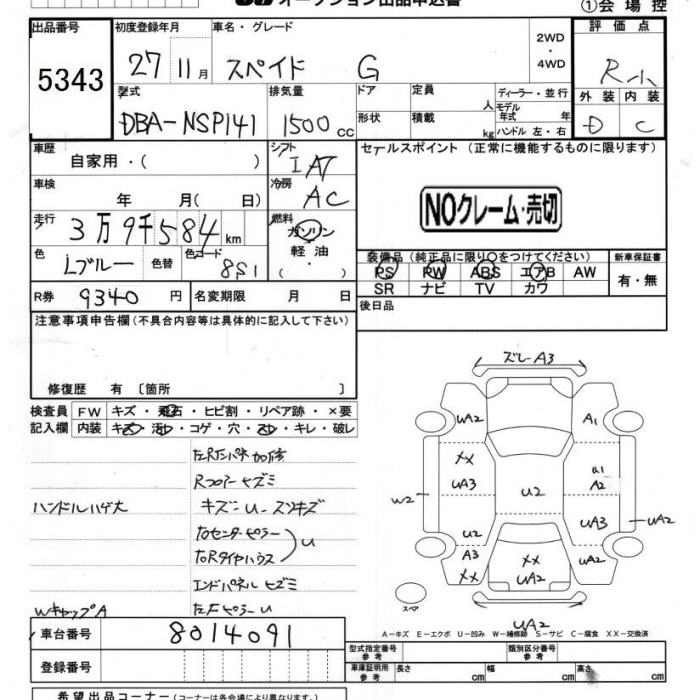 オークション出品申込書
①会場控
出品番号 初度登録年月 車名・グレード 評価点
5343 27 11月 スペイド G 2WD・4WD R小
型式 排気量 ドア 定員 人 ディーラー・並行 外装 内装
DBA-NSP141 1500cc 形状 積載 kg モデル年式 年 ハンドル 左・右 D C
車歴 自家用・( ) シフト IAT セールスポイント (正常に機能するものに限ります)
車検 年 月(日) 冷房 AC
NOクレーム・売切
走行 3万9千584km 燃料 ガソリン
軽油
・
( )
色 Lブルー 色替 色コード 8S1
装備品 (純正品に限り○をつけてください) 新車保証書
PS PW ABS エアB AW 有・無
SR ナビ TV カワ
R券 9340円 名変期限 月 日 後日品
注意事項申告欄(不具合内容等は具体的に記入して下さい)
修復歴 有 〔箇所 〕
検査員 FW キズ・飛石・ヒビ割・リペア跡・×要
記入欄 内装 キズ・汚レ・コゲ・穴・スレ・キレ・破レ
Rフロアーヒズミ
ハンドルハゲ大
キズ-U-スソキズ
左右センターピラー
左右Rタイヤハウス
U
エンドパネルヒズミ
WキャップA
左Fピラー U
ズレA3
UA2 A1
XX U1
UA3 A2
W2 U2
UA3 UA2
U2
A3 XX UA2
XX UA2
スペア
UA2
A-キズ E-エクボ U-凹み W-補修跡 S-サビ C-腐食 XX-交換済
車台番号 8014091
型式指定番号 参考 類別区分番号 参考
登録番号
車庫証明用参考 長さ cm 幅 cm 高さ cm
希望出品コーナー(コーナーは各会場により異なります。)